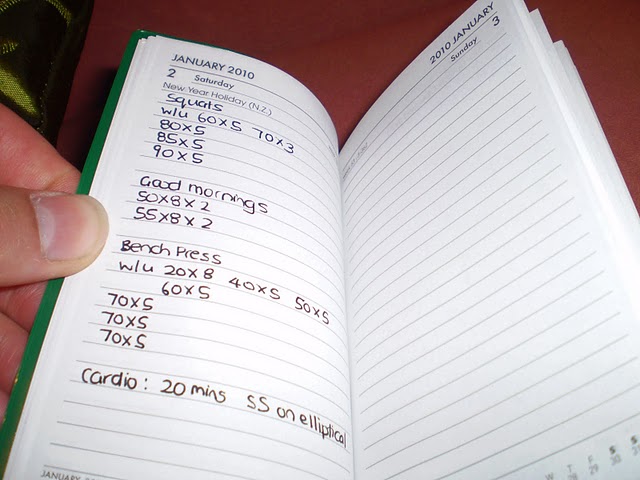 JANUARY 2010
2 Saturday
New Year Holiday (N.Z.)
Squats
w/u 60x5 70x3
80x5
85x5
90x5
Good mornings
50x8x2
55x8x2
Bench Press
w/u 20x8 40x5 50x5
60x5
70x5
70x5
70x5
Cardio: 20 mins SS on elliptical
2010 JANUARY
Sunday 3
W T F S S
28 29 30 31